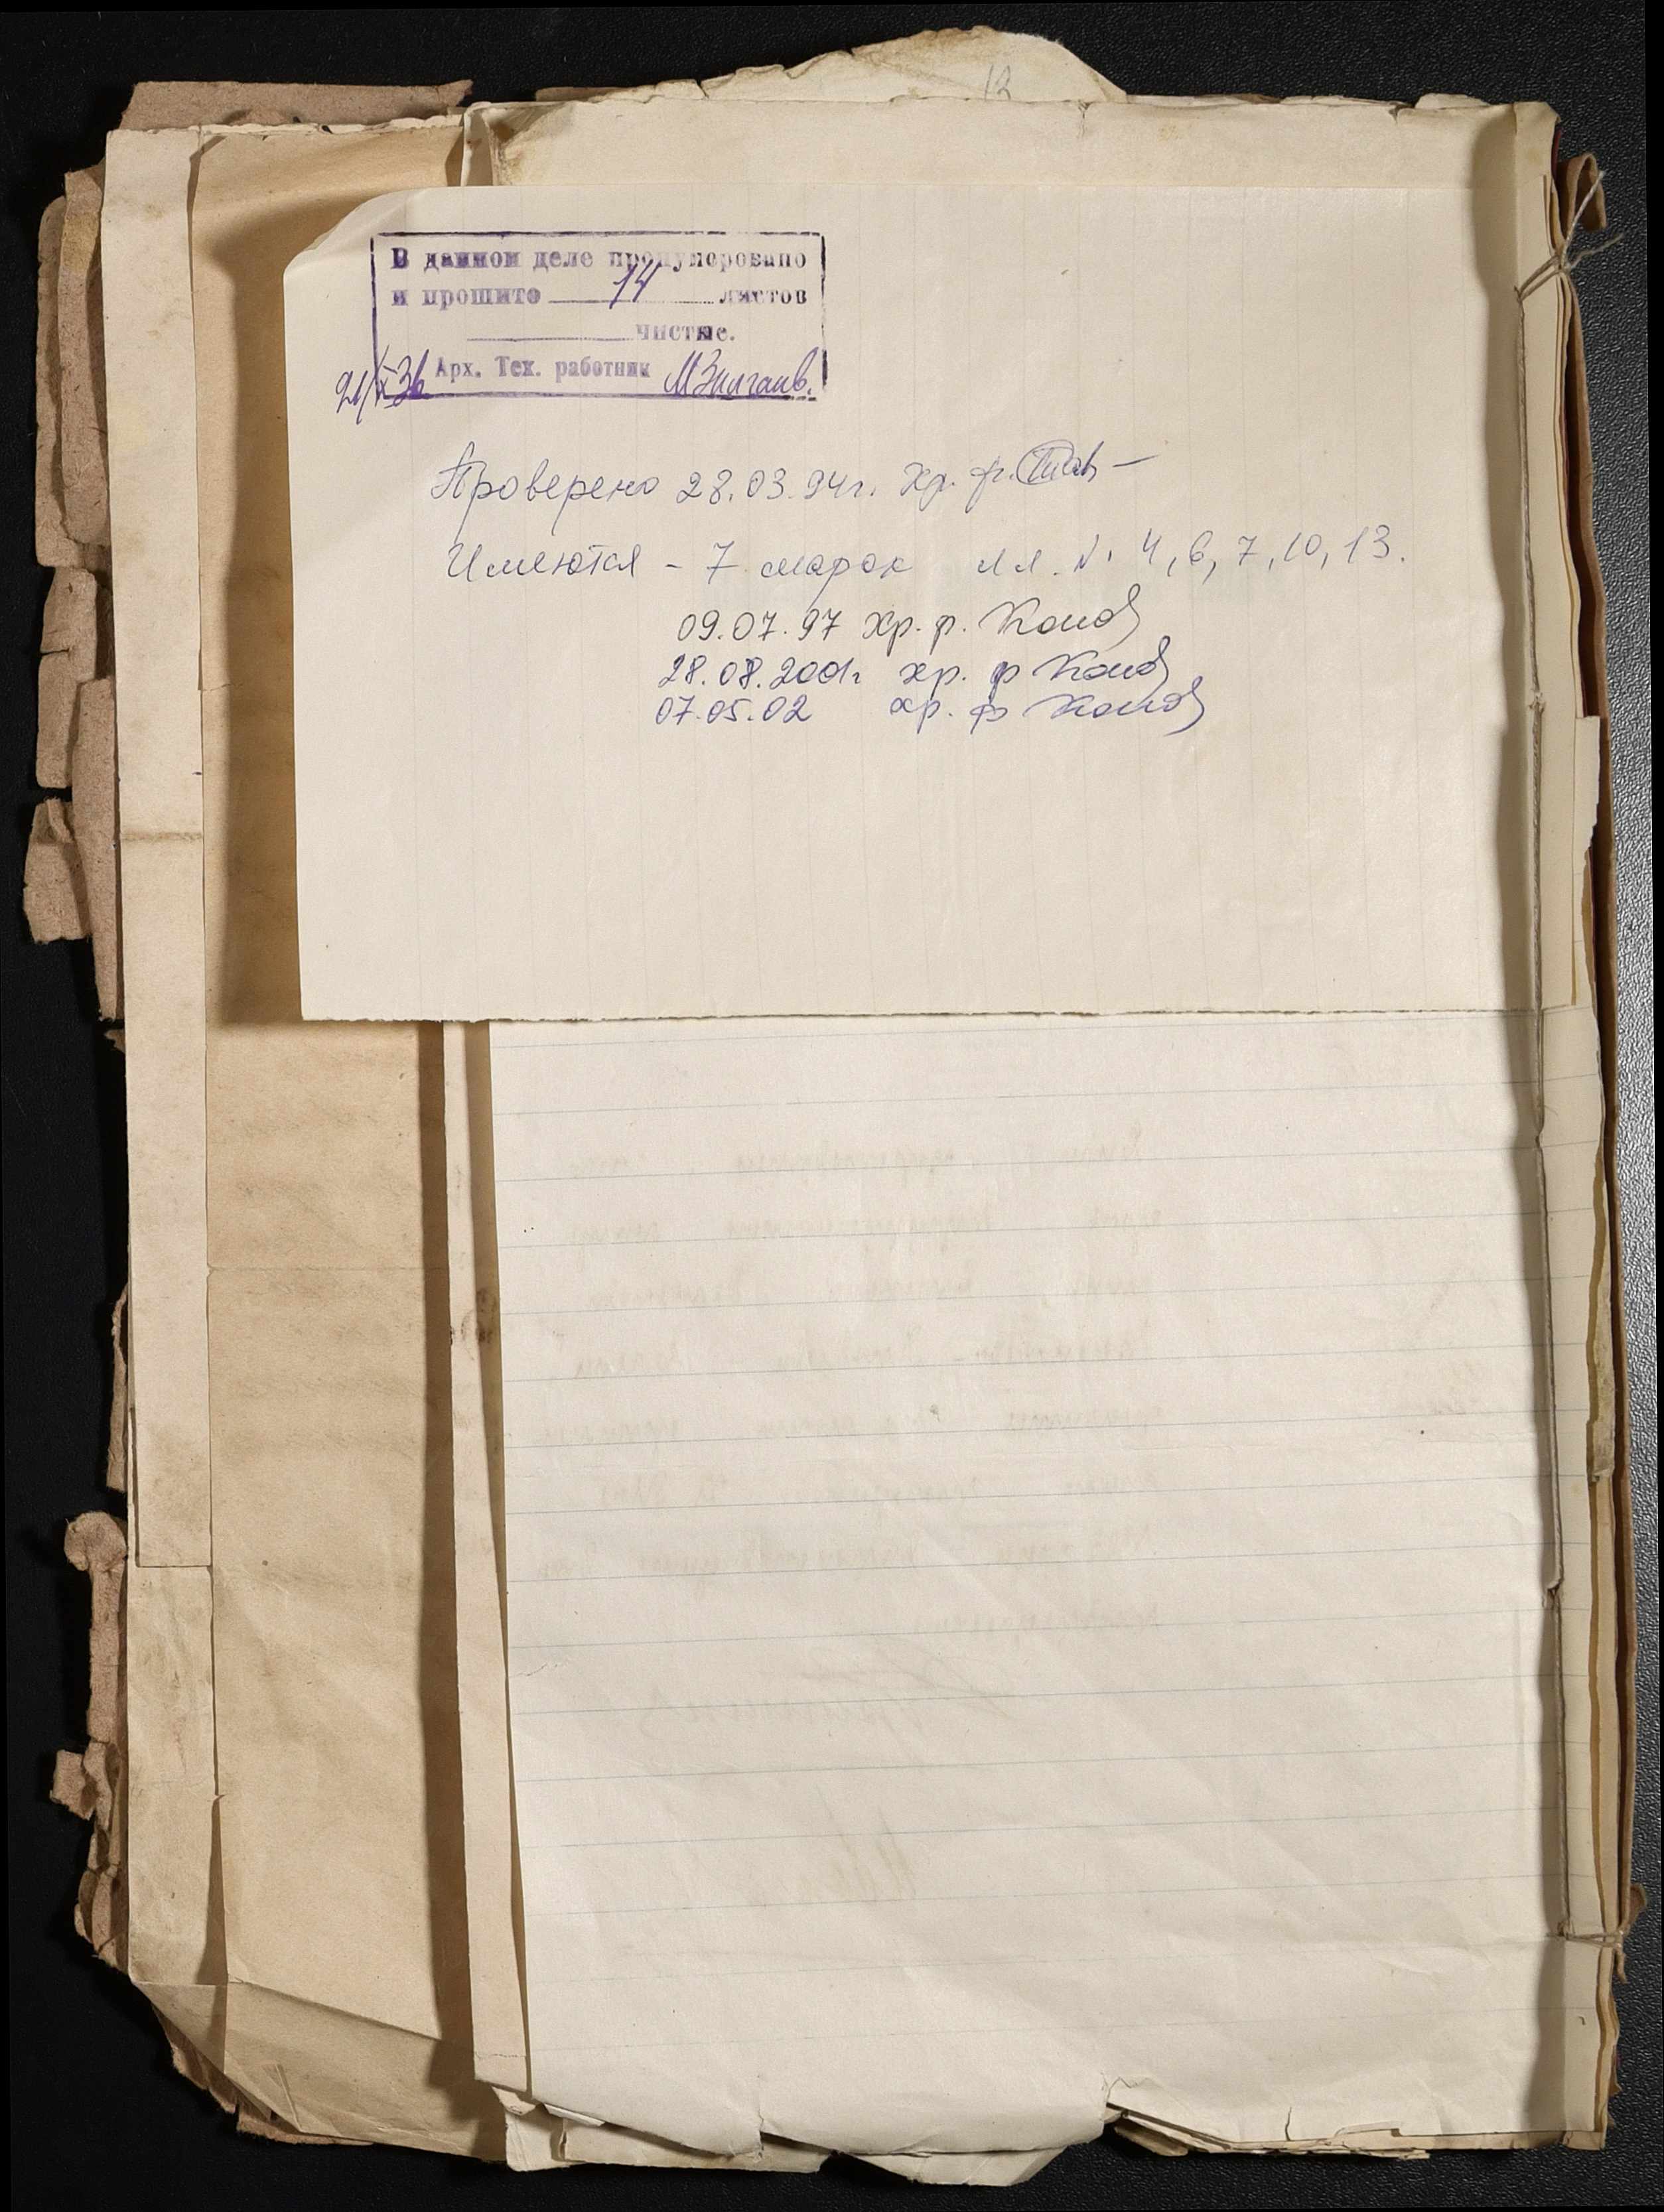 12
В данном деле пронумеровано
и прошито 14 листов
чистые.
Арх. Тех. работник
Проверено 28.03.94г. Хр. ф.
Имеются - 7 марок лл. № 4, 6, 7, 10, 13.
09.07.97 Хр. ф.
28.08.2001г хр. ф
07.05.02 хр. ф